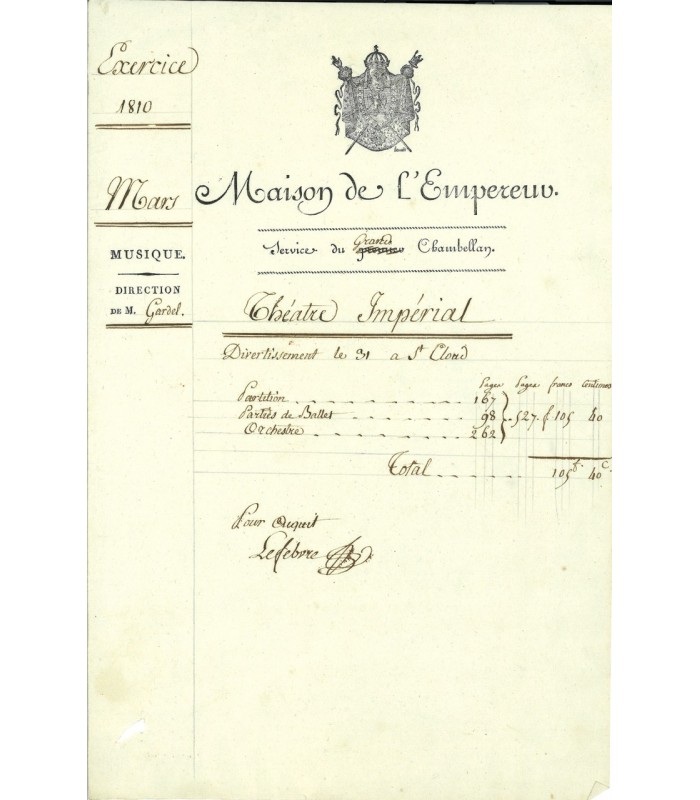 Exercice
1810
Mars
MUSIQUE.
DIRECTION
DE M. Gardel.
Maison de L'Empereur.
Service du Grand premier Chambellan.
Théatre Impérial
Divertissement le 31 a St Cloud
Pages Pages francs Centimes
Partition 167
Parties de Ballet 98 } 527. f 105 40
Orchestre 262
Total 105f. 40c.
Pour acquit
Lefebvre